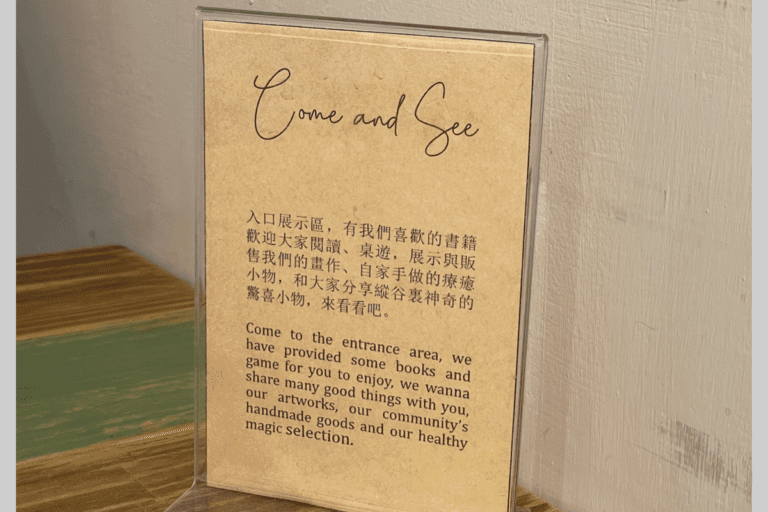 Come and See
入口展示區，有我們喜歡的書籍
歡迎大家閱讀、桌遊，展示與販
售我們的畫作、自家手做的療癒
小物，和大家分享縱谷裏神奇的
驚喜小物，來看看吧。
Come to the entrance area, we
have provided some books and
game for you to enjoy, we wanna
share many good things with you,
our artworks, our community's
handmade goods and our healthy
magic selection.